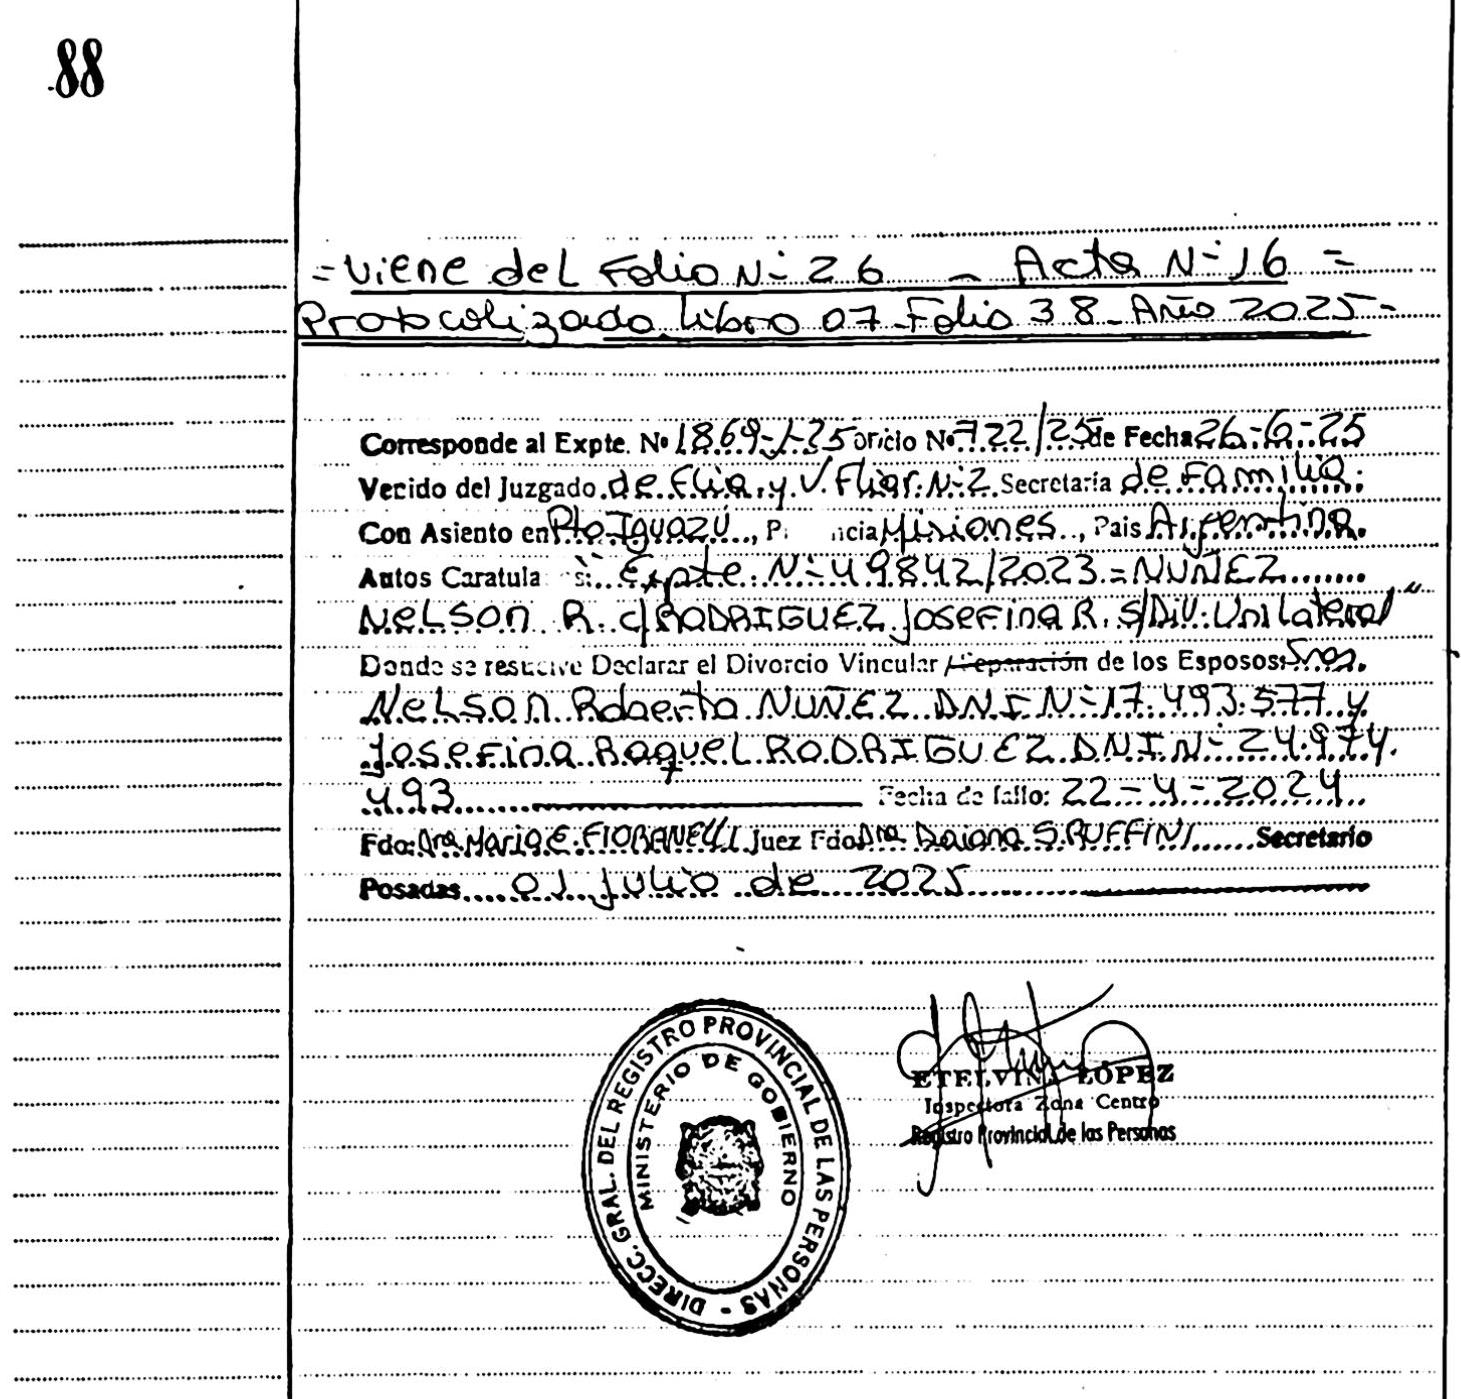 88
= Viene del Folio N- 26 - Acta N- 16 =
Protocolizado Libro 07 - Folio 38 - Año 2025 -
Corresponde al Expte. Nº 1869-J-25 oficio Nº 722/25 de Fecha 26-6-25
Vecido del Juzgado de Flia. y V. Fliar. N-2 Secretaria de Familia.
Con Asiento en Pto Iguazú, P ncia Misiones, Pais Argentina.
Autos Caratula s: "Expte. N- 49842/2023 = NUÑEZ
NELSON R. c/ RODRIGUEZ Josefina R. S/Div. Unilateral"
Donde se resuelve Declarar el Divorcio Vincular / Separación de los Esposos: Sres.
NELSON Roberto NUÑEZ DNI N- 17.493.577 y
Josefina Raquel RODRIGUEZ DNI N- 24.974.
493 Fecha de fallo: 22-4-2024
Fdo: Dra. Maria E. FIORANELLI Juez Fdo Dra Daiana S. RUFFINI Secretario
Posadas 01 Julio de 2025
DIRECC. GRAL. DEL REGISTRO PROVINCIAL DE LAS PERSONAS -
MINISTERIO DE GOBIERNO
ETELVINA LÓPEZ
Inspectora Zona Centro
Registro Provincial de las Personas